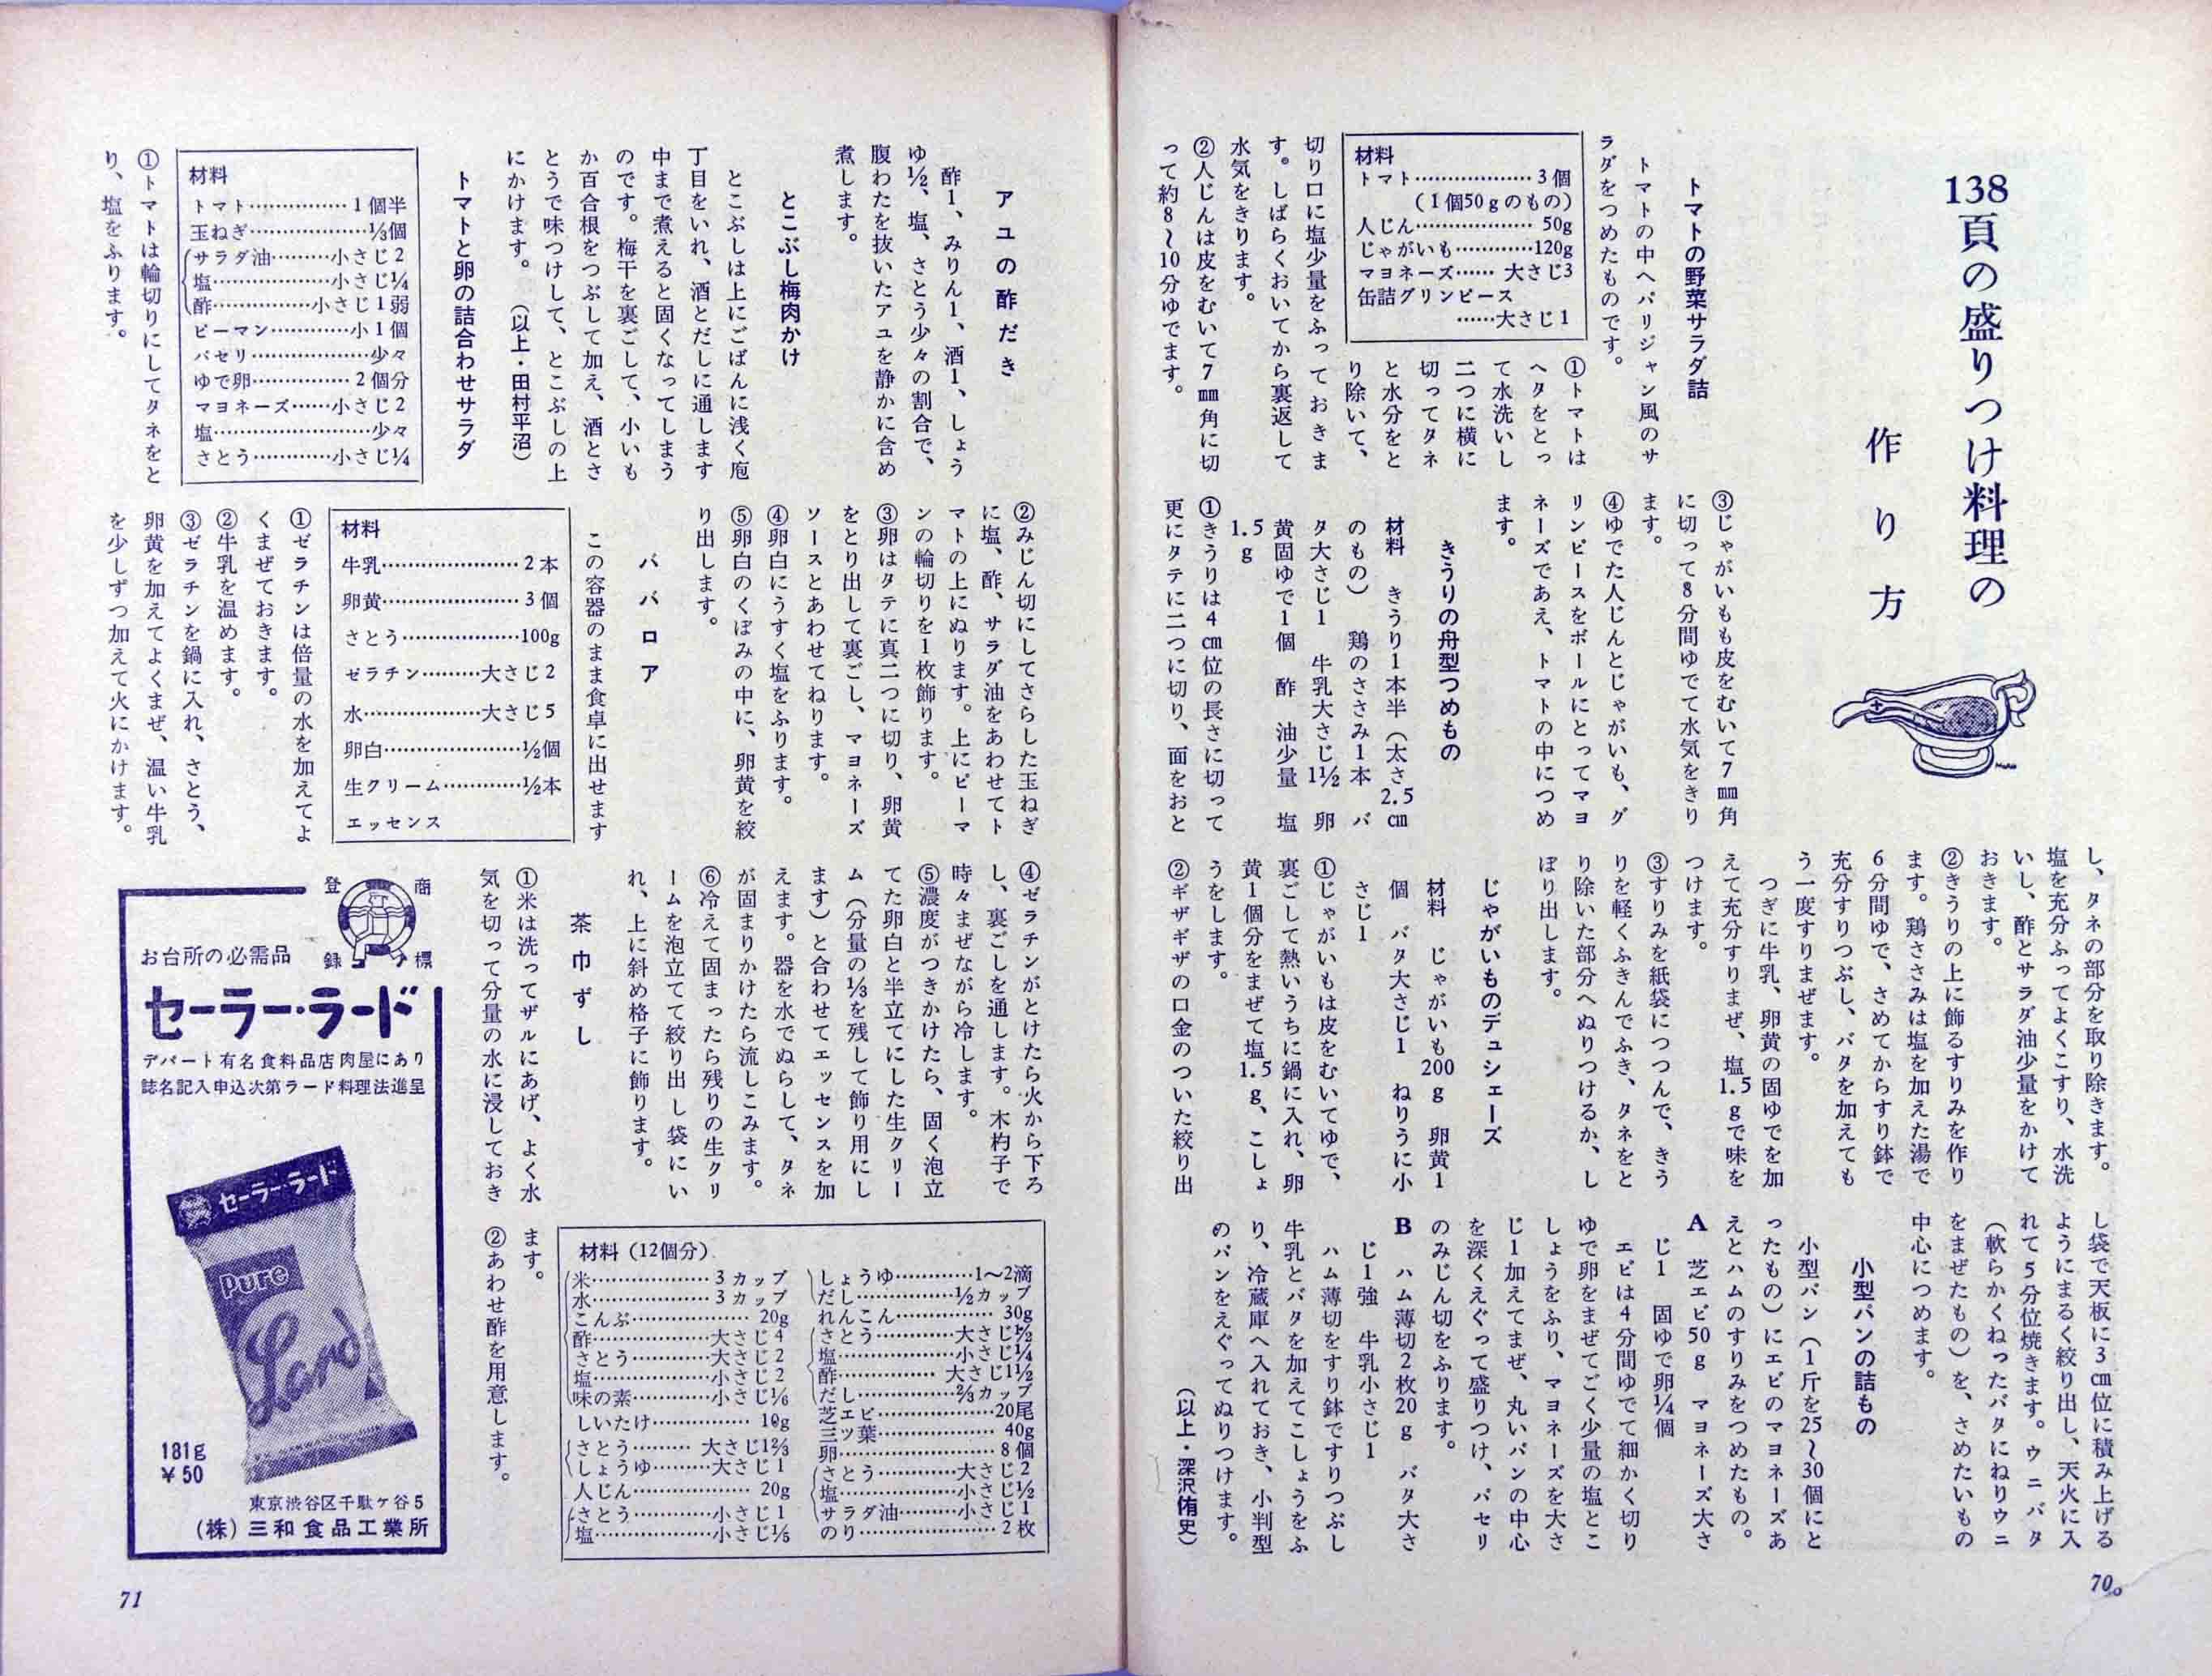 138頁の盛りつけ料理の
作り方
トマトの野菜サラダ詰
トマトの中へパリジャン風のサ
ラダをつめたものです。
材料
トマト………………3個
(1個50gのもの)
人じん………………50g
じゃがいも…………120g
マヨネーズ……大さじ3
缶詰グリンピース
……大さじ1
①トマトは
ヘタをとっ
て水洗いし
二つに横に
切ってタネ
と水分をと
り除いて、
切り口に塩少量をふっておきま
す。しばらくおいてから裏返して
水気をきります。
②人じんは皮をむいて7㎜角に切
って約8〜10分ゆでます。
③じゃがいもも皮をむいて7㎜角
に切って8分間ゆでて水気をきり
ます。
④ゆでた人じんとじゃがいも、グ
リンピースをボールにとってマヨ
ネーズであえ、トマトの中につめ
ます。
きうりの舟型つめもの
材料 きうり1本半(太さ2.5㎝
のもの) 鶏のささみ1本 バ
タ大さじ1 牛乳大さじ1½ 卵
黄固ゆで1個 酢 油少量 塩
1.5g
①きうりは4㎝位の長さに切って
更にタテに二つに切り、面をおと
し、タネの部分を取り除きます。
塩を充分ふってよくこすり、水洗
いし、酢とサラダ油少量をかけて
おきます。
②きうりの上に飾るすりみを作り
ます。鶏ささみは塩を加えた湯で
6分間ゆで、さめてからすり鉢で
充分すりつぶし、バタを加えても
う一度すりまぜます。
つぎに牛乳、卵黄の固ゆでを加
えて充分すりまぜ、塩1.5gで味を
つけます。
③すりみを紙袋につつんで、きう
りを軽くふきんでふき、タネをと
り除いた部分へぬりつけるか、し
ぼり出します。
じゃがいものデュシェーズ
材料 じゃがいも200g 卵黄1
個 バタ大さじ1 ねりうに小
さじ1
①じゃがいもは皮をむいてゆで、
裏ごしして熱いうちに鍋に入れ、卵
黄1個分をまぜて塩1.5g、こしょ
うをします。
②ギザギザの口金のついた絞り出
し袋で天板に3㎝位に積み上げる
ようにまるく絞り出し、天火に入
れて5分位焼きます。ウニバタ
(軟らかくねったバタにねりウニ
をまぜたもの)を、さめたいもの
中心につめます。
小型パンの詰もの
小型パン(1斤を25〜30個にと
ったもの)にエビのマヨネーズあ
えとハムのすりみをつめたもの。
A 芝エビ50g マヨネーズ大さ
じ1 固ゆで卵¼個
エビは4分間ゆでて細かく切り
ゆで卵をまぜてごく少量の塩とこ
しょうをふり、マヨネーズを大さ
じ1加えてまぜ、丸いパンの中心
を深くえぐって盛りつけ、パセリ
のみじん切をふります。
B ハム薄切2枚20g バタ大さ
じ1強 牛乳小さじ1
ハム薄切をすり鉢ですりつぶし
牛乳とバタを加えてこしょうをふ
り、冷蔵庫へ入れておき、小判型
のパンをえぐってぬりつけます。
(以上・深沢侑史)
70
アユの酢だき
酢1、みりん1、酒1、しょう
ゆ½、塩、さとう少々の割合で、
腹わたを抜いたアユを静かに含め
煮します。
とこぶし梅肉かけ
とこぶしは上にごばんに浅く庖
丁目をいれ、酒とだしに通します
中まで煮えると固くなってしまう
のです。梅干を裏ごして、小いも
か百合根をつぶして加え、酒とさ
とうで味つけして、とこぶしの上
にかけます。 (以上・田村平沼)
トマトと卵の詰合わせサラダ
材料
トマト……………1個半
玉ねぎ………………⅓個
サラダ油………小さじ2
塩………………小さじ¼
酢……………小さじ1弱
ピーマン…………小1個
パセリ………………少々
ゆで卵……………2個分
マヨネーズ……小さじ2
塩……………………少々
さとう…………小さじ¼
①トマトは輪切りにしてタネをと
り、塩をふります。
②みじん切にしてさらした玉ねぎ
に塩、酢、サラダ油をあわせてト
マトの上にぬります。上にピーマ
ンの輪切りを1枚飾ります。
③卵はタテに真二つに切り、卵黄
をとり出して裏ごし、マヨネーズ
ソースとあわせてねります。
④卵白にうすく塩をふります。
⑤卵白のくぼみの中に、卵黄を絞
り出します。
ババロア
この容器のまま食卓に出せます
材料
牛乳…………………2本
卵黄…………………3個
さとう………………100g
ゼラチン………大さじ2
水………………大さじ5
卵白…………………½個
生クリーム…………½本
エッセンス
①ゼラチンは倍量の水を加えてよ
くまぜておきます。
②牛乳を温めます。
③ゼラチンを鍋に入れ、さとう、
卵黄を加えてよくまぜ、温い牛乳
を少しずつ加えて火にかけます。
④ゼラチンがとけたら火から下ろ
し、裏ごしを通します。木杓子で
時々まぜながら冷します。
⑤濃度がつきかけたら、固く泡立
てた卵白と半立てにした生クリー
ム(分量の⅓を残して飾り用にし
ます)と合わせてエッセンスを加
えます。器を水でぬらして、タネ
が固まりかけたら流しこみます。
⑥冷えて固まったら残りの生クリ
ームを泡立てて絞り出し袋にい
れ、上に斜め格子に飾ります。
茶巾ずし
①米は洗ってザルにあげ、よく水
気を切って分量の水に浸しておき
ます。
②あわせ酢を用意します。
材料(12個分)
米………………3カップ
水………………3カップ
こんぶ………………20g
酢………………大さじ4
さとう…………大さじ2
塩………………小さじ2
味の素…………小さじ⅙
しいたけ……………10g
さとう………大さじ1⅔
しょうゆ………大さじ1
人じん………………20g
さとう…………小さじ1
塩………………小さじ⅕
しょうゆ…………1〜2滴
だし……………½カップ
れんこん……………30g
さとう…………大さじ½
塩………………小さじ¼
酢……………大さじ1½
だし……………⅔カップ
芝エビ………………20尾
三ッ葉………………40g
卵……………………8個
さとう…………大さじ2
塩………………小さじ½
サラダ油………小さじ1
のり…………………2枚
登録
商標
お台所の必需品
セーラー・ラード
デパート有名食料品店肉屋にあり
誌名記入申込次第ラード料理法進呈
セーラー・ラード
Pure
Lard
181g
¥50
東京渋谷区千駄ヶ谷5
(株)三和食品工業所
71